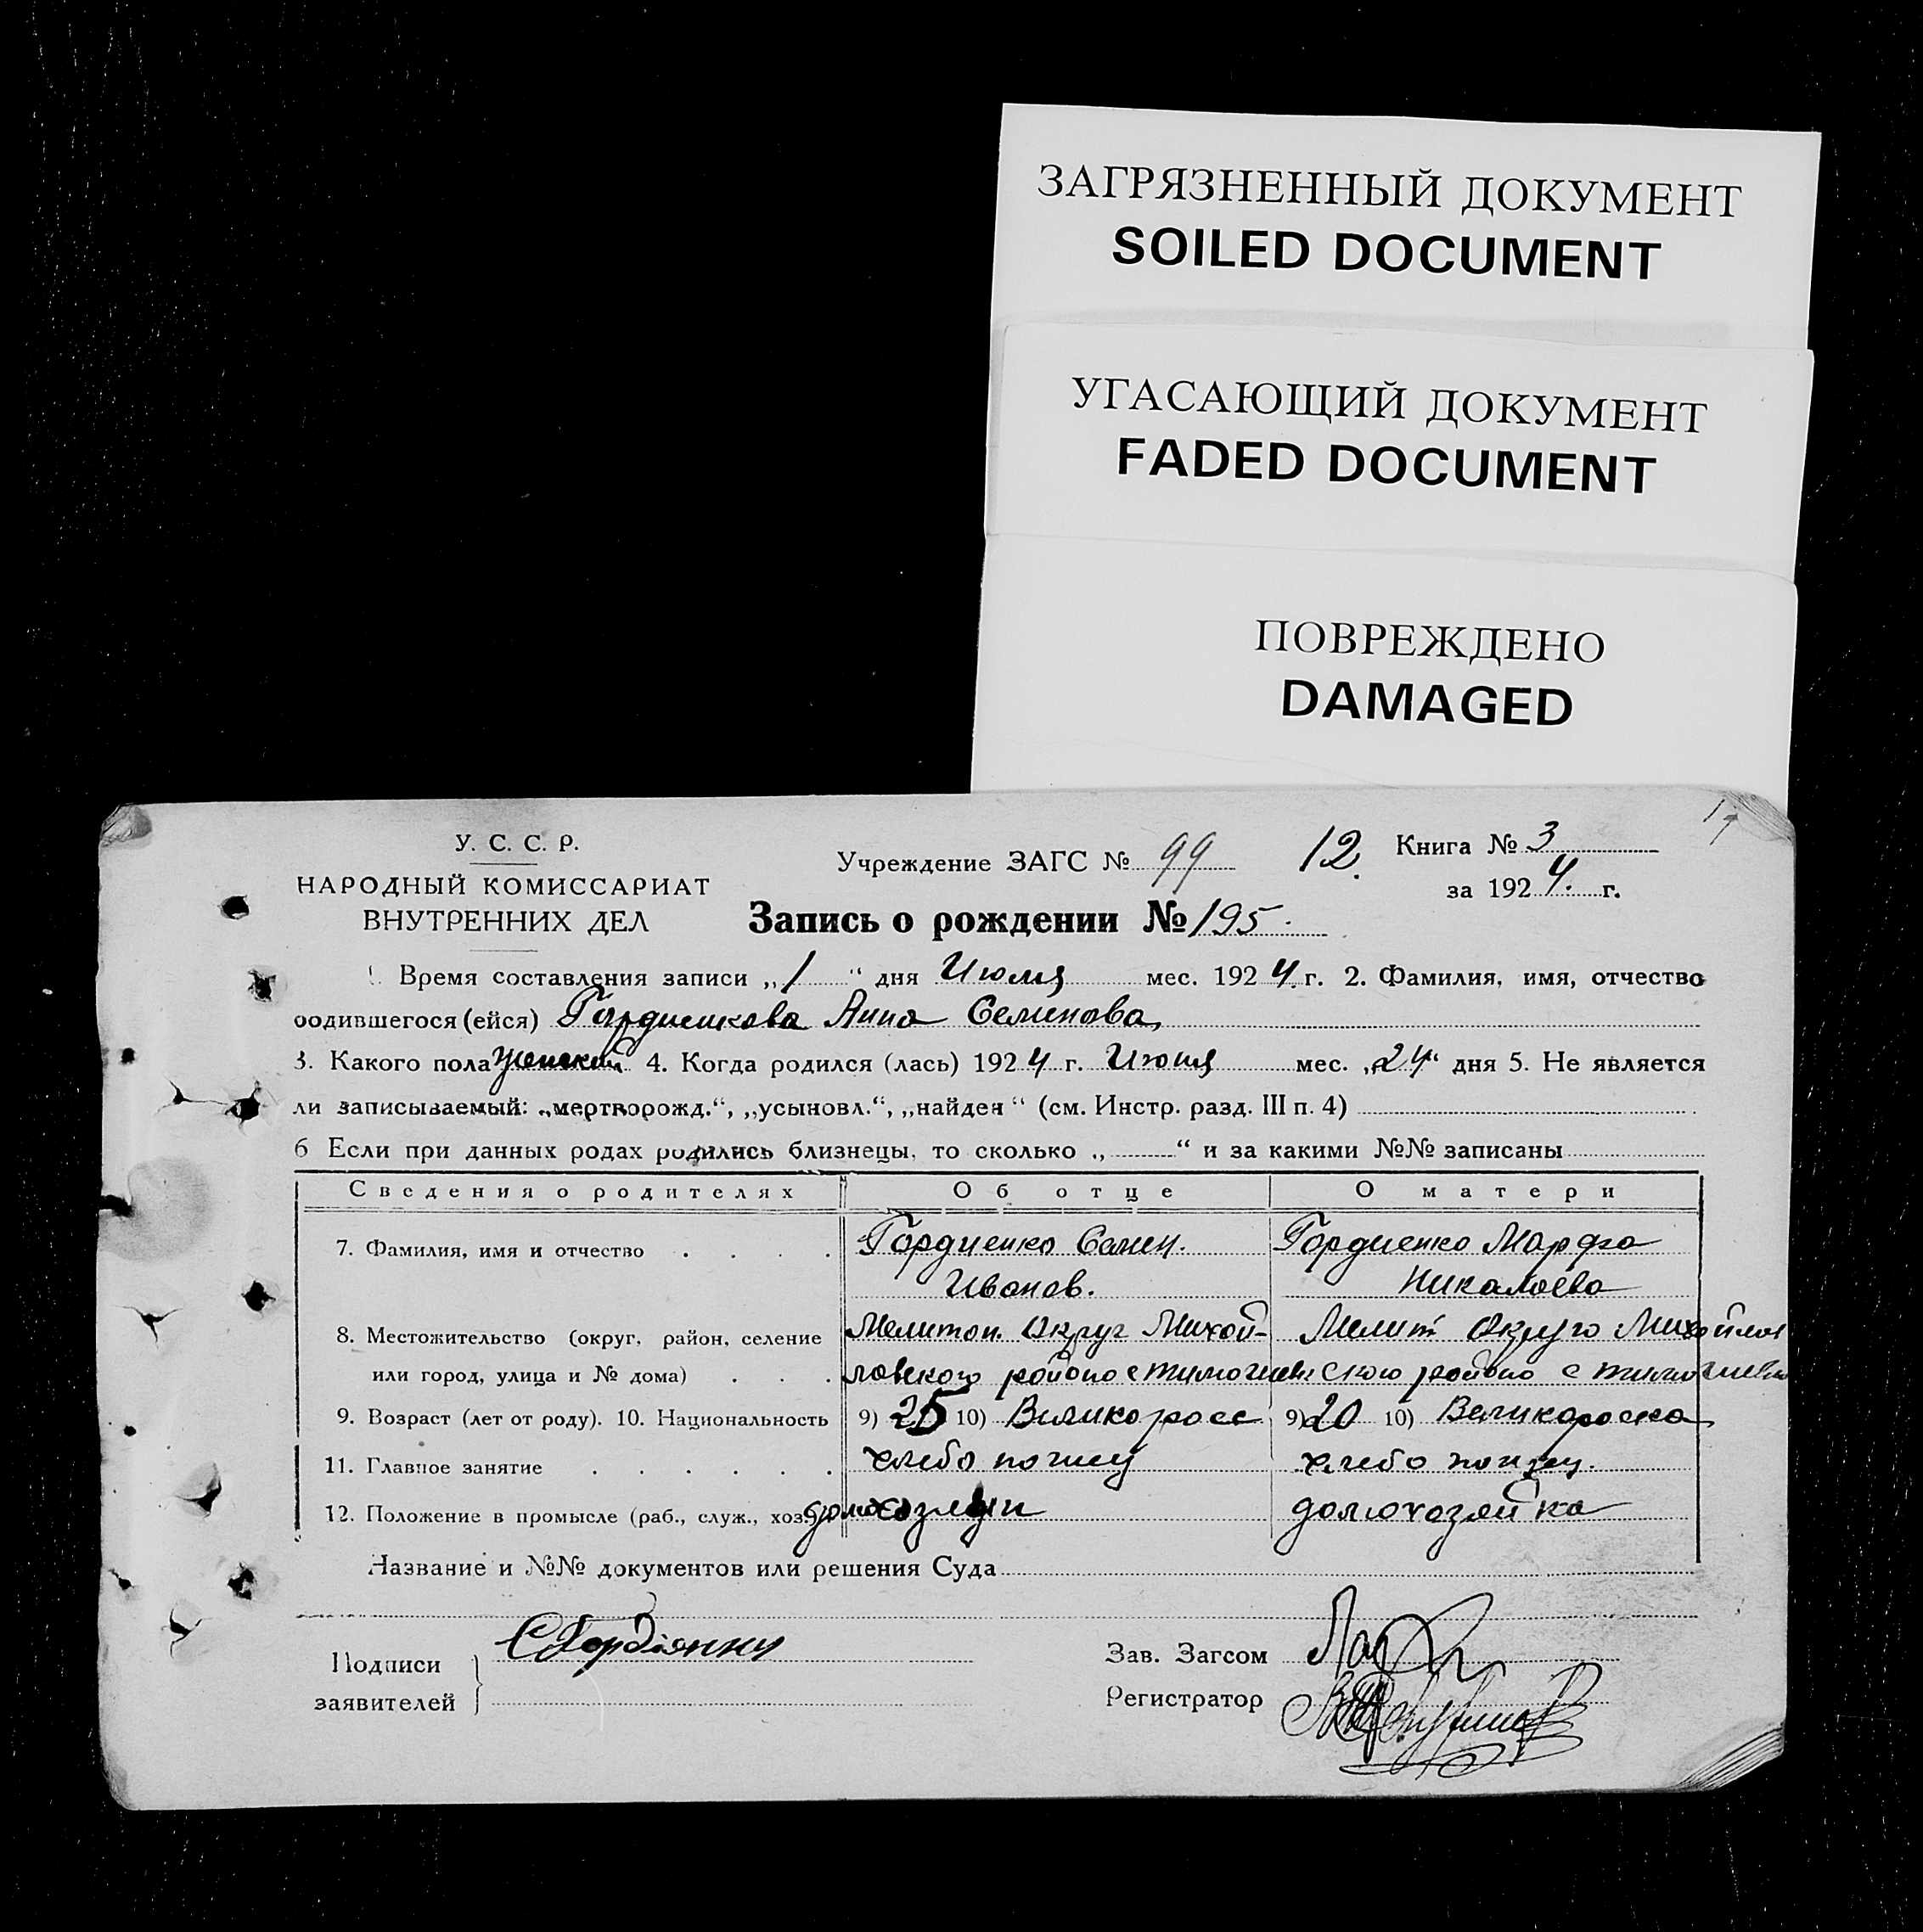 ЗАГРЯЗНЕННЫЙ ДОКУМЕНТ
SOILED DOCUMENT
УГАСАЮЩИЙ ДОКУМЕНТ
FADED DOCUMENT
ПОВРЕЖДЕНО
DAMAGED
У. С. С. Р.
НАРОДНЫЙ КОМИССАРИАТ
ВНУТРЕННИХ ДЕЛ
Учреждение ЗАГС № 99 12. Книга № 3
за 1924. г.
Запись о рождении № 195.
1. Время составления записи „1“ дня Июля мес. 1924. г. 2. Фамилия, имя, отчество
родившегося (ейся) Гордиенкова Анна Семенова
3. Какого пола женский 4. Когда родился (лась) 1924 г. Июня мес. „24“ дня 5. Не является
ли записываемый: „мертворожд.“, „усыновл.“, „найден“ (см. Инстр. разд. III п. 4)
6 Если при данных родах родились близнецы, то сколько „ “ и за какими №№ записаны
Сведения о родителях Об отце О матери
7. Фамилия, имя и отчество Гордиенко Семен. Гордиенко Марфа
Иванов. Николаева
8. Местожительство (округ, район, селение Мелитоп. округ Михай- Мелит округа Михайлов
или город, улица и № дома) ловского района с ского района с
9. Возраст (лет от роду). 10. Национальность 9) 25 10) Великоросс 9) 20 10) Великороска
11. Главное занятие хлебо пашец хлебо
12. Положение в промысле (раб., служ., хоз.) домохозяин домохозяйка
Название и №№ документов или решения Суда
Подписи
заявителей
Зав. Загсом
Регистратор